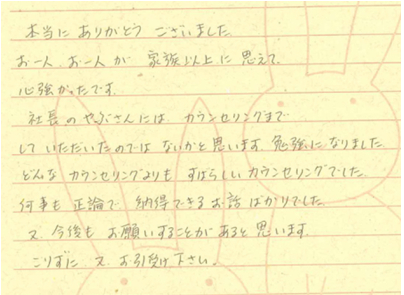 本当に ありがとう ございました。
お一人、お一人が 家族以上に 思えて、
心強かったです。
社長の やぶさんには、カウンセリングまで
して いただいたのでは ないかと 思います。勉強に なりました。
どんな カウンセリングよりも すばらしい カウンセリングでした。
何事も 正論で 納得できる お話 ばかりでした。
又、今後も お願いすることが あると 思います。
こりずに 又、お引受け下さい。